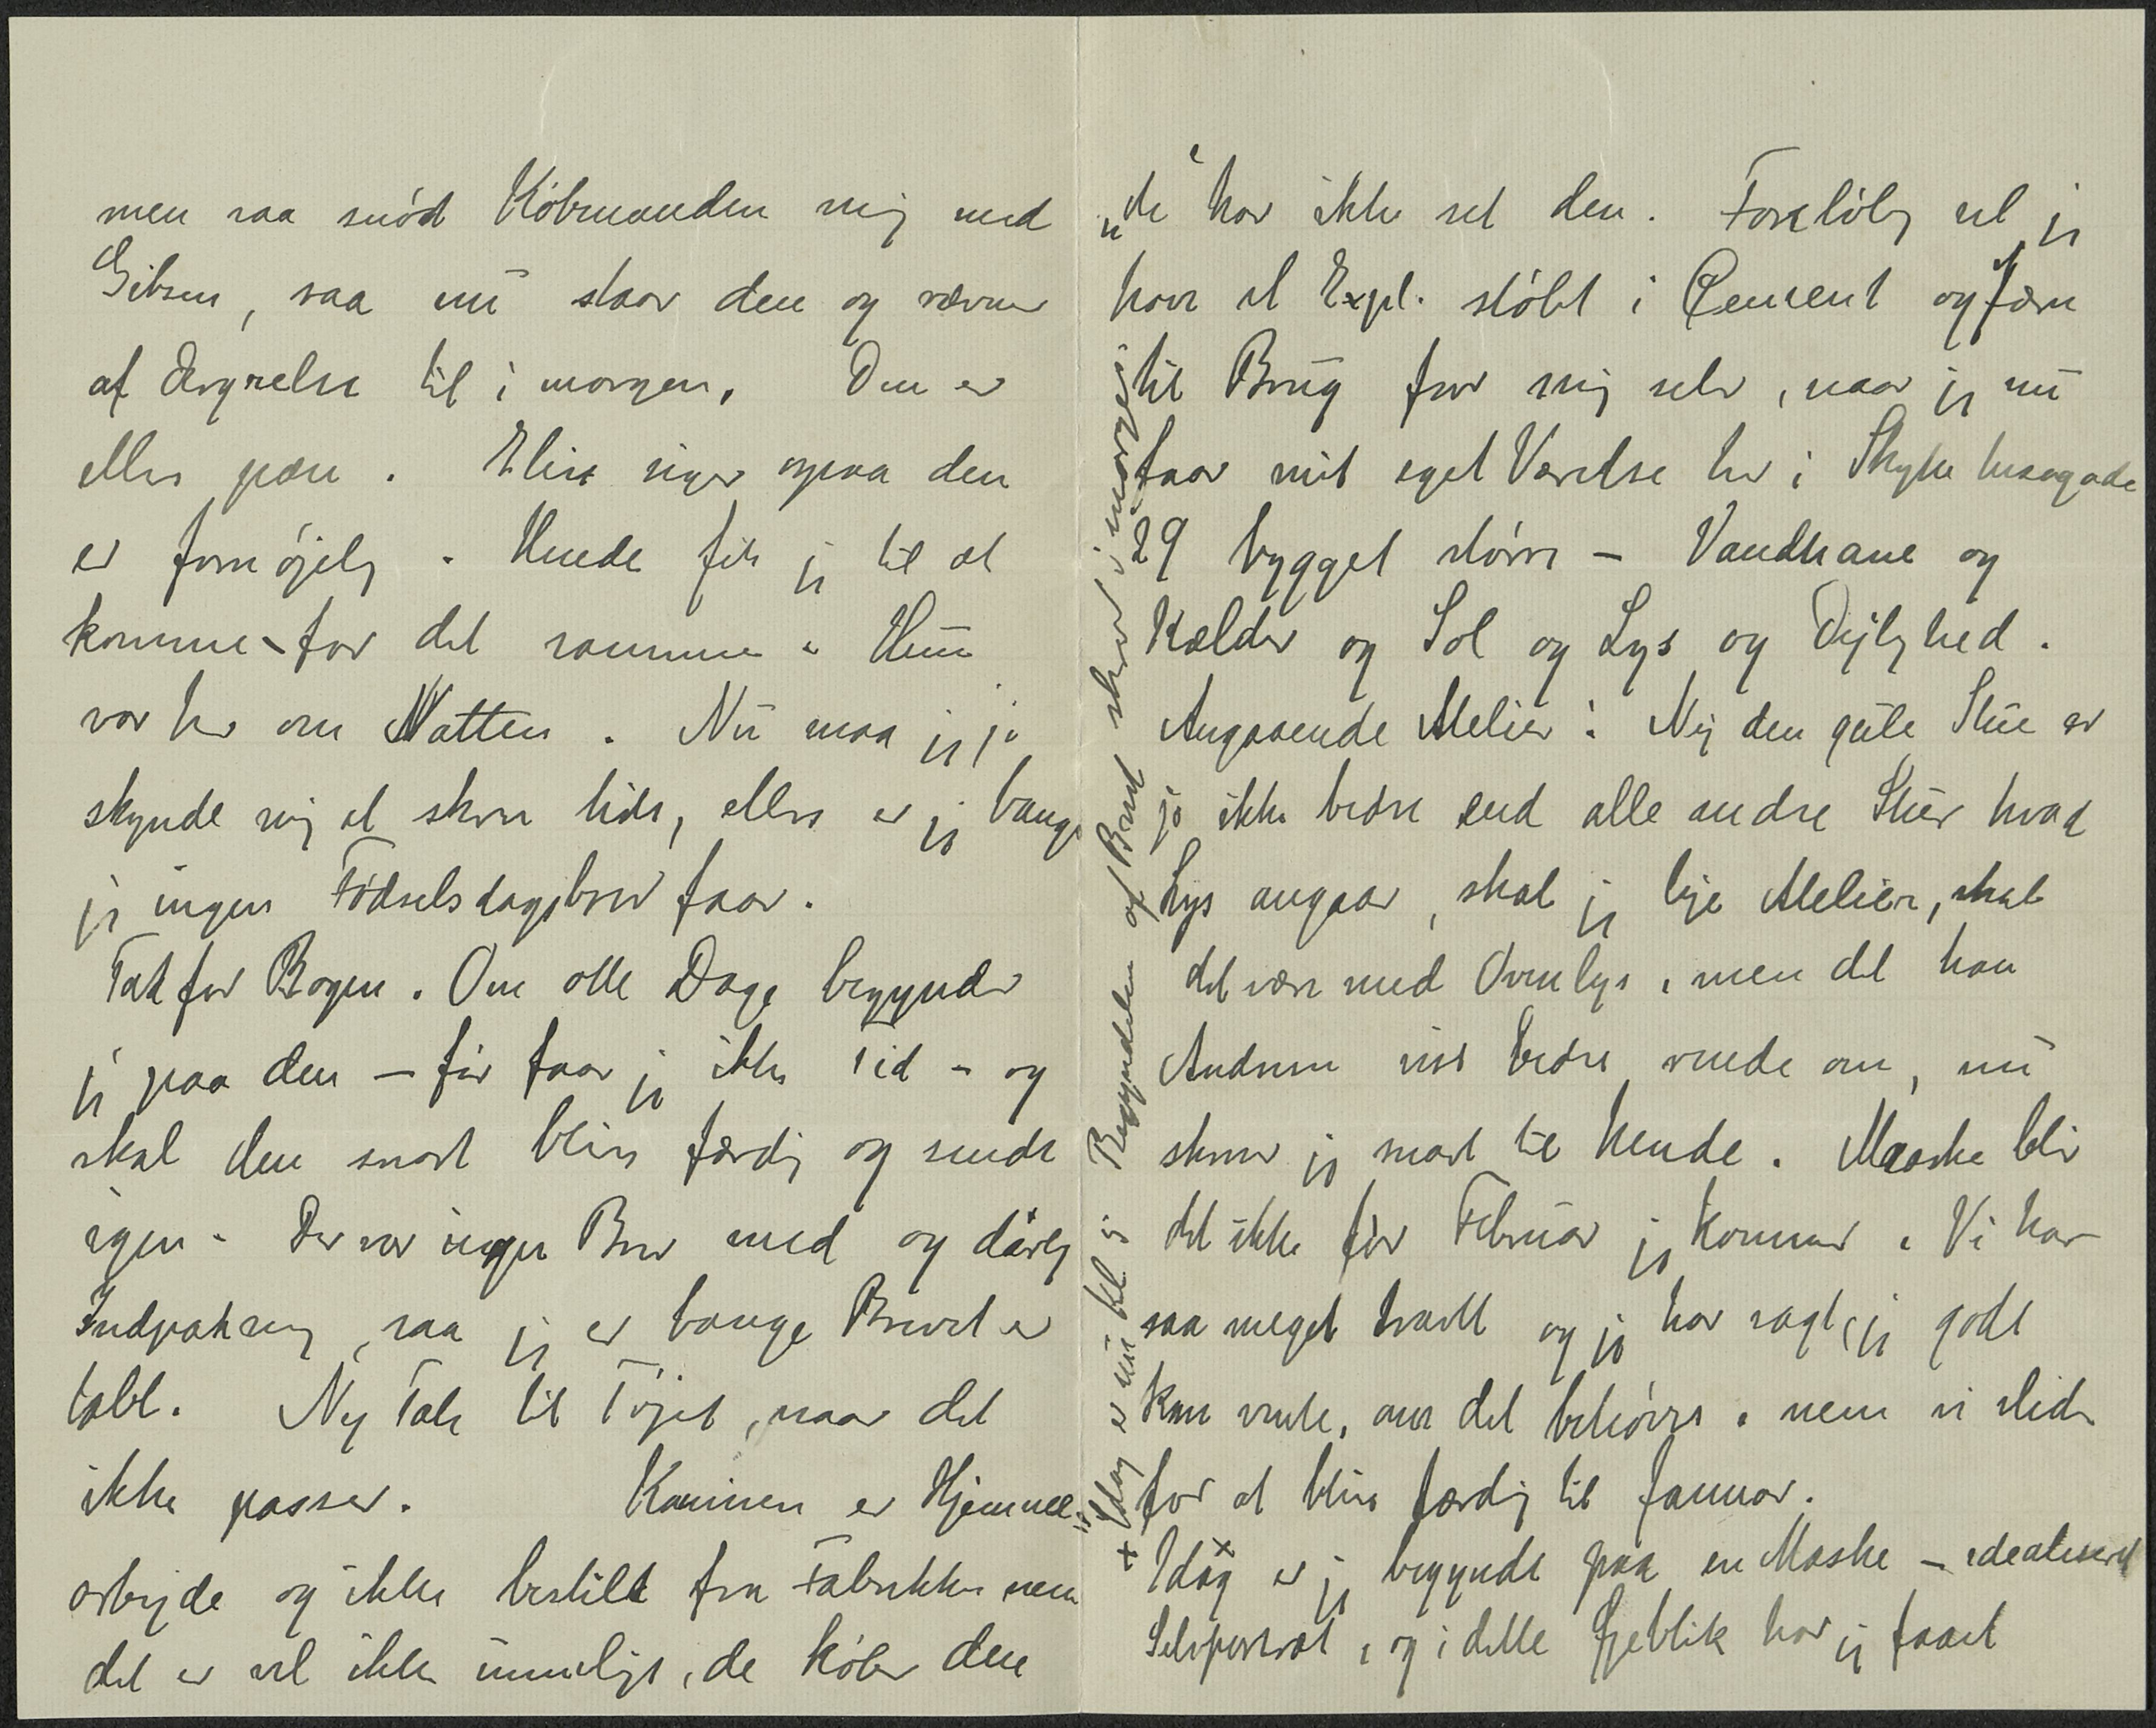 men saa snød Købmanden mig med
Gibsen, saa nu staar den og revner
af Ærgrelse til i morgen. Den er
ellers pæn. Elisa siger ogsaa den
er fornøjelig. Hende fik jeg til at
komme for det samme. Hun
var her om Natten. Nu maa jeg jo
skynde mig at skrive lidt, ellers er jeg bange
jeg ingen Fødselsdagsbrev faar.
Tak for Bogen. Om otte Dage begynder
jeg paa den – før faar jeg ikke Tid – og
skal den snart blive færdig og sendt
igen. Der var ingen Brev med og dårlig
Indpakning, saa jeg er bange Brevet er
tabt. Nej Tak til Tøjet, naar det
ikke passer. Kaminen er Hjemme=
arbejde og ikke bestilt fra Fabrikken men
det er vel ikke umuligt, de køber den
"de har ikke set den. Foreløbig vil jeg
have et Expl. støbt i Cement og Jærn
til Brug for mig selv, naar jeg nu
faar mit eget Værelse her i Skyttehusgade
29 bygget større – Vandhane og
Kælder og Sol og Lys og Dejlighed.
Angaaende Atelier: Nej den gule Stue er
jo ikke bedre end alle andre Stuer hvad
Lys angaar, skal jeg leje Atelier, skal
det være med Ovenlys, men det kan
Andersen vist bedre vende om, nu
skriver jeg snart til hende. Maaske blir
det ikke før Februar jeg kommer. Vi har
saa meget travlt og jeg har sagt, jeg godt
kan vente, om det behøves. men vi slider
for at blive færdig til Januar.
Idag x er jeg begyndt paa en Maske – idealiseret
Selvportræt, og i dette Øjeblik har jeg faaet
x Idag er nu kl 5 Begyndelsen af Brevet skrev i morges